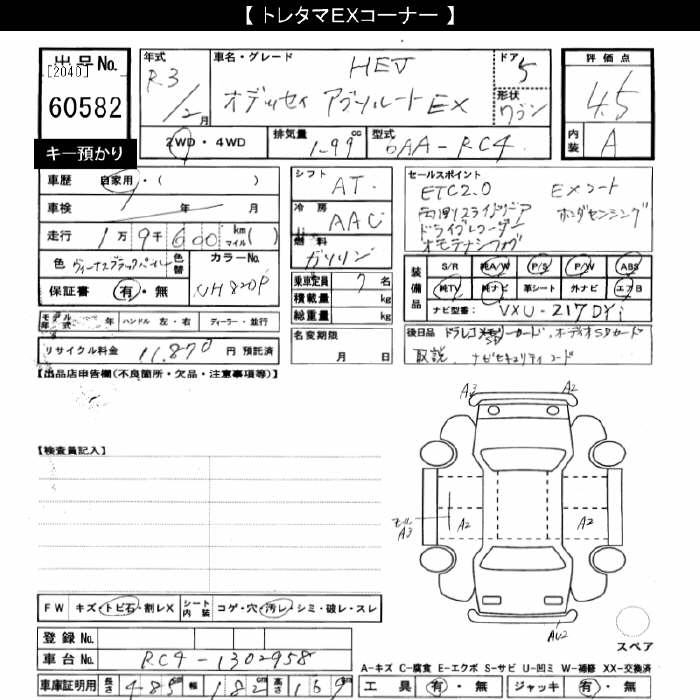 【 トレタマEXコーナー 】
出品No.
[2040]
60582
キー預かり
年式 R3/2月
車名・グレード HEV
オデッセイ アブソルートEX
ドア 5
形状 ワゴン
評価点 4.5
内装 A
2WD・4WD
排気量 1.99 cc
型式 6AA-RC4
車歴 自家用・( )
車検 年 月
走行 1万9千600 km マイル( )
色 ヴィーナスブラックパール 色替 カラーNo.
保証書 有・無
シフト AT
冷房 AAC
燃料 ガソリン
乗車定員 7名
積載量 kg
総重量 kg
名変期限
月 日
セールスポイント
ETC2.0 EXコート
両側Pスライドドア ホンダセンシング
ドライブレコーダー
装備品 S/R 純A/W P/S P/W ABS
純TV 純ナビ 革シート 外ナビ エアB
ナビ型番: VXU-217DYi
後日品 ドラレコ
取説、ナビセキュリティコード
モデル年式 年 ハンドル 左・右 ディーラー・並行
リサイクル料金 11,870 円 預託済
【出品店申告欄(不良箇所・欠品・注意事項等)】
【検査員記入】
A3 A2
モール A3 A2 A2
AU2
スペア
FW キズ・トビ石・割レX シート内装 コゲ・穴・汚レ・シミ・破レ・スレ
登録No.
車台No. RC4-1302958
車庫証明用 長さ 485cm 幅 182cm 高さ 169cm
A-キズ C-腐食 E-エクボ S-サビ U-凹ミ W-補修 XX-交換済
工具 有・無 ジャッキ 有・無